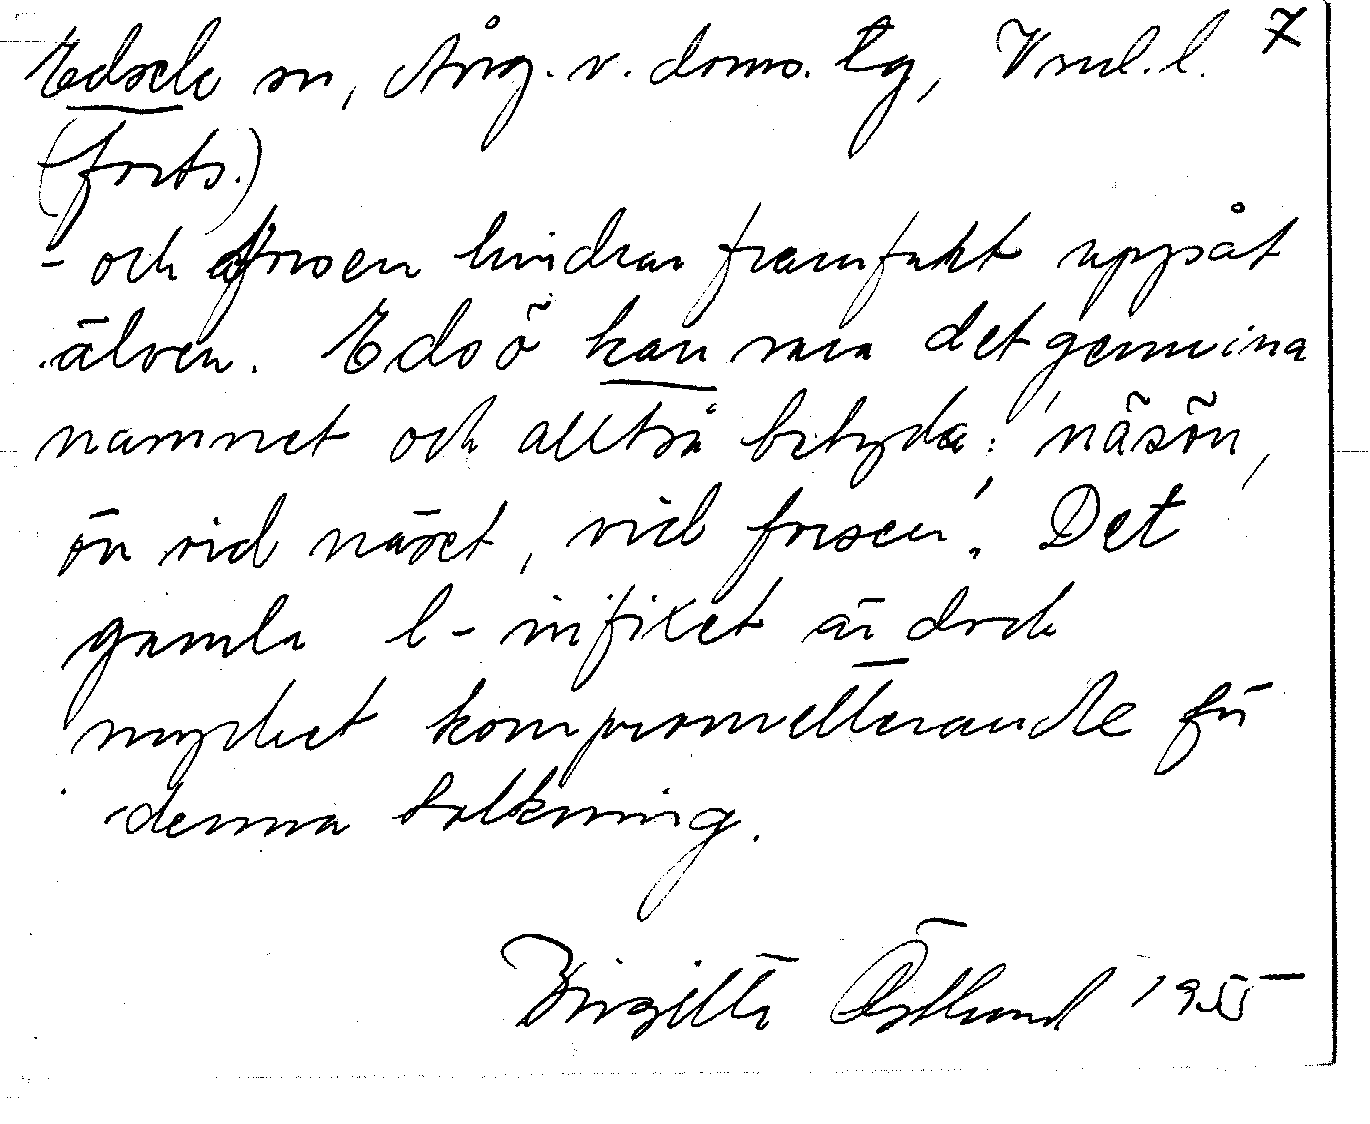 Edsele sn, Ång. v. doms. tg, Vnl. l. 7
(forts.)
- och forsen hindrar framfart uppåt
älven. Edsö kan vara det genuina
namnet och alltså betyda: 'näsön,
ön vid näset, vid forsen'. Det
gamla l-infixet är dock
mycket komprometterande för
denna tolkning.
Birgitta Östlund 1955